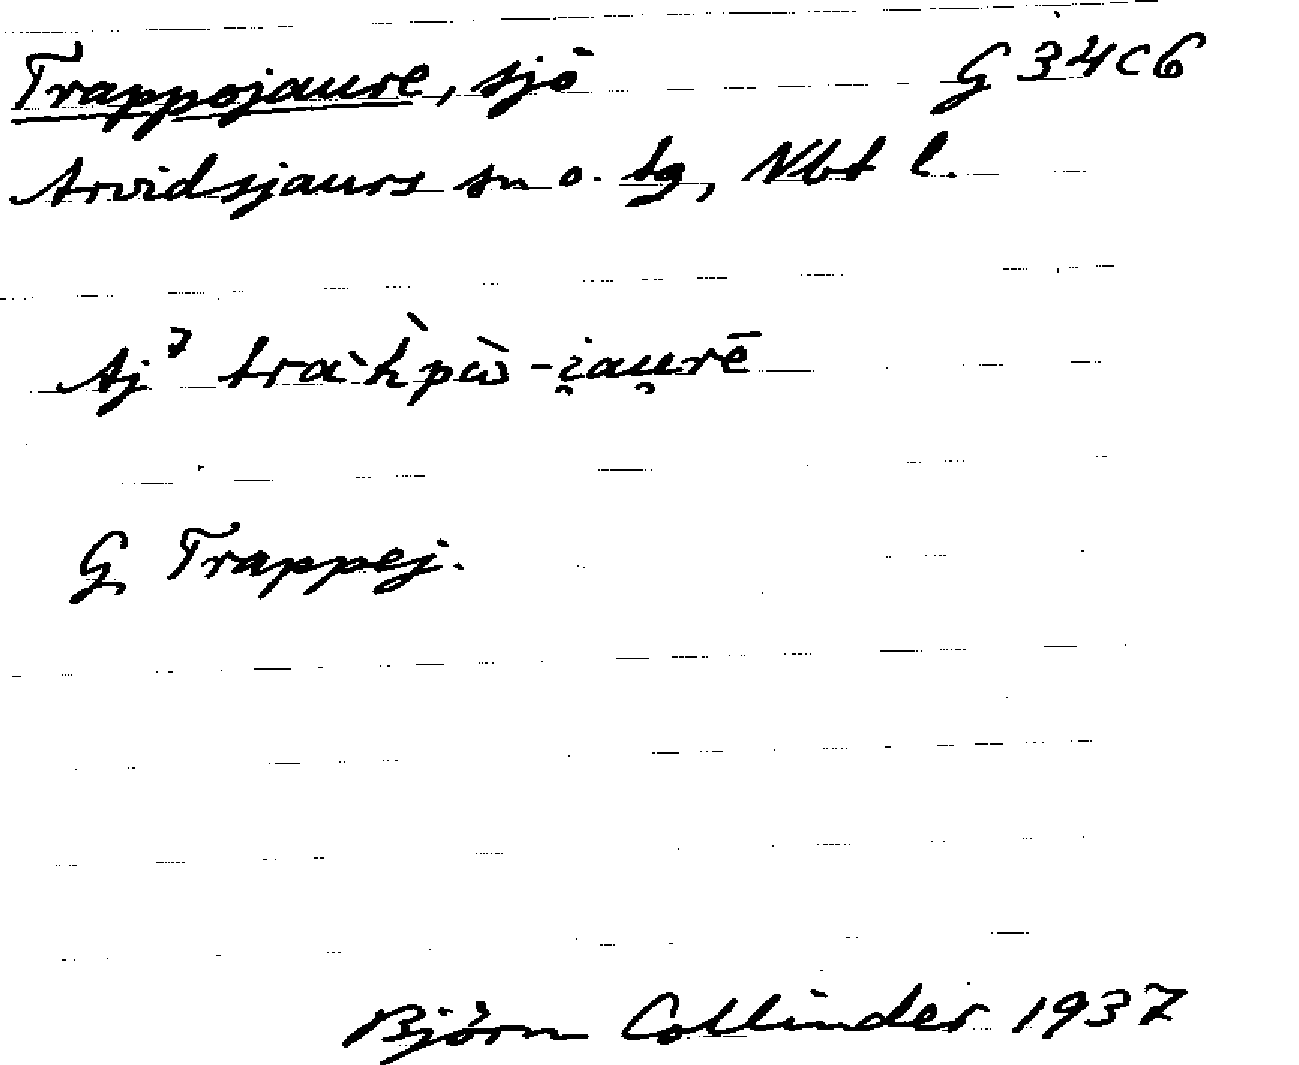 Trappojaure, sjö G 34C6
Arvidsjaurs sn o. tg, Nbt l.
Aj⁷ tràh̀pẁ-i̯au̯rē
G Trappej.
Björn Collinder 1937